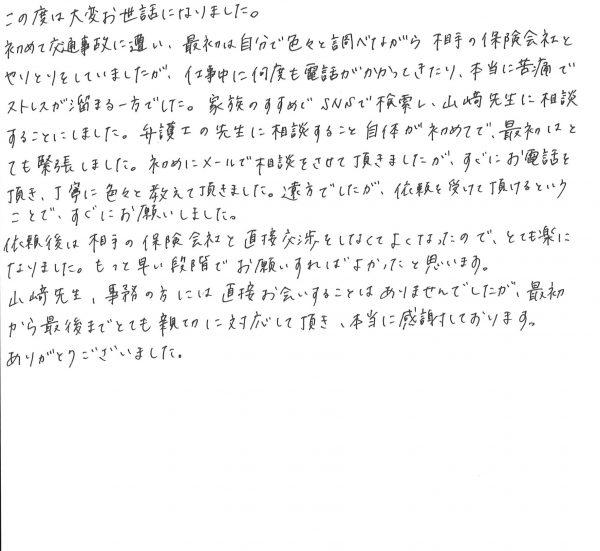 この度は大変お世話になりました。
初めて交通事故に遭い、最初は自分で色々と調べながら 相手の保険会社と
やりとりをしていましたが、仕事中に何度も電話がかかってきたり、本当に苦痛で
ストレスが溜まる一方でした。家族のすすめでSNSで検索し、山﨑先生に相談
することにしました。弁護士の先生に相談すること自体が初めてで、最初はと
ても緊張しました。初めにメールで相談をさせて頂きましたが、すぐにお電話を
頂き、丁寧に色々と教えて頂きました。遠方でしたが、依頼を受けて頂けるという
ことで、すぐにお願いしました。
依頼後は相手の保険会社と直接交渉をしなくてよくなったので、とても楽に
なりました。もっと早い段階でお願いすればよかったと思います。
山﨑先生、事務の方には直接お会いすることはありませんでしたが、最初
から最後までとても親切に対応して頂き、本当に感謝しております。
ありがとうございました。